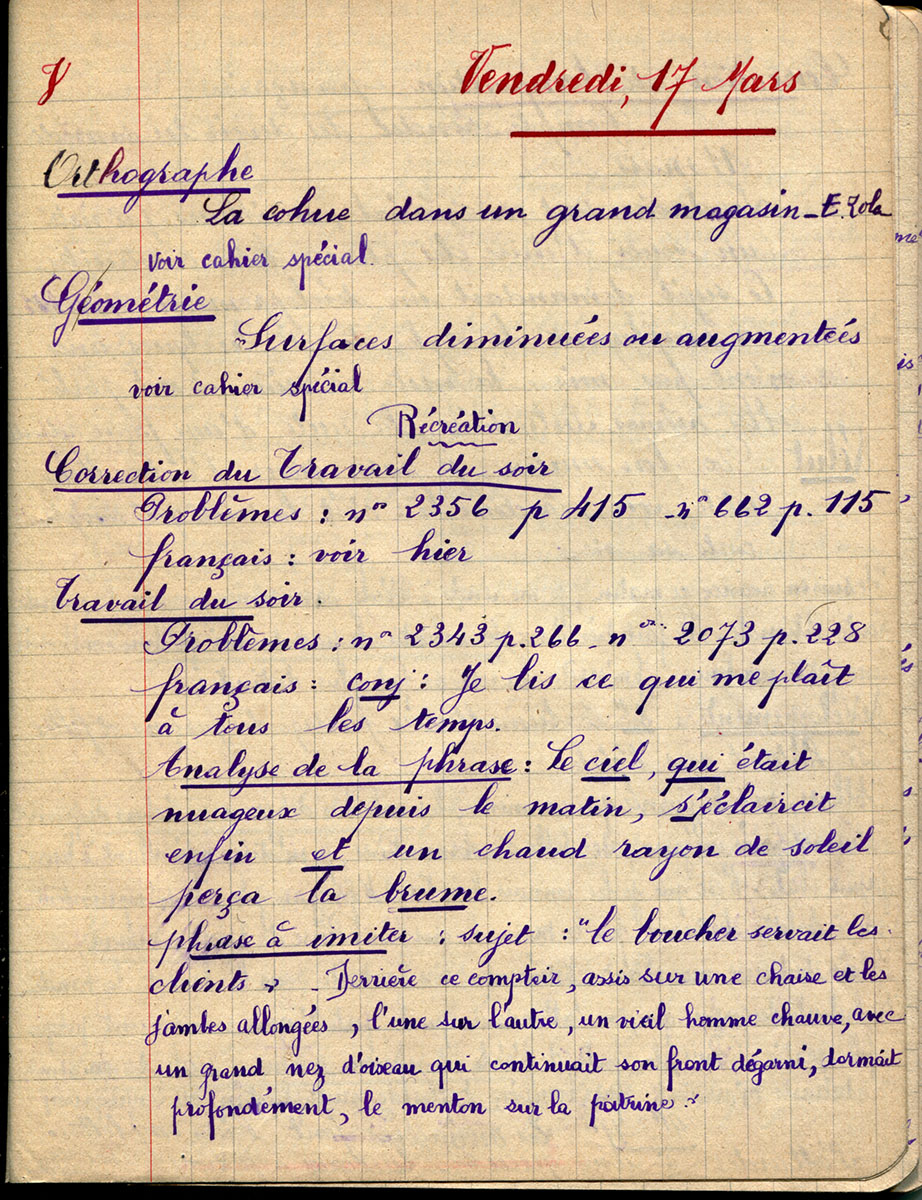 Vendredi, 17 Mars
Orthographe
La cohue dans un grand magasin - E. Zola
voir cahier spécial.
Géométrie
Surfaces diminuées ou augmentées
voir cahier spécial
Récréation
Correction du Travail du soir
Problèmes : nos 2356 p 415 - no 662 p. 115
français : voir hier
Travail du soir.
Problèmes : no 2343 p. 266 - no 2073 p. 228
français : conj : Je lis ce qui me plaît
à tous les temps.
Analyse de la phrase : Le ciel, qui était
nuageux depuis le matin, s'éclaircit
enfin et un chaud rayon de soleil
perça la brume.
phrase à imiter : sujet : "le boucher servait les
clients" - Derrière ce comptoir, assis sur une chaise et les
jambes allongées, l'une sur l'autre, un vieil homme chauve, avec
un grand nez d'oiseau qui continuait son front dégarni, dormait
profondément, le menton sur la poitrine."